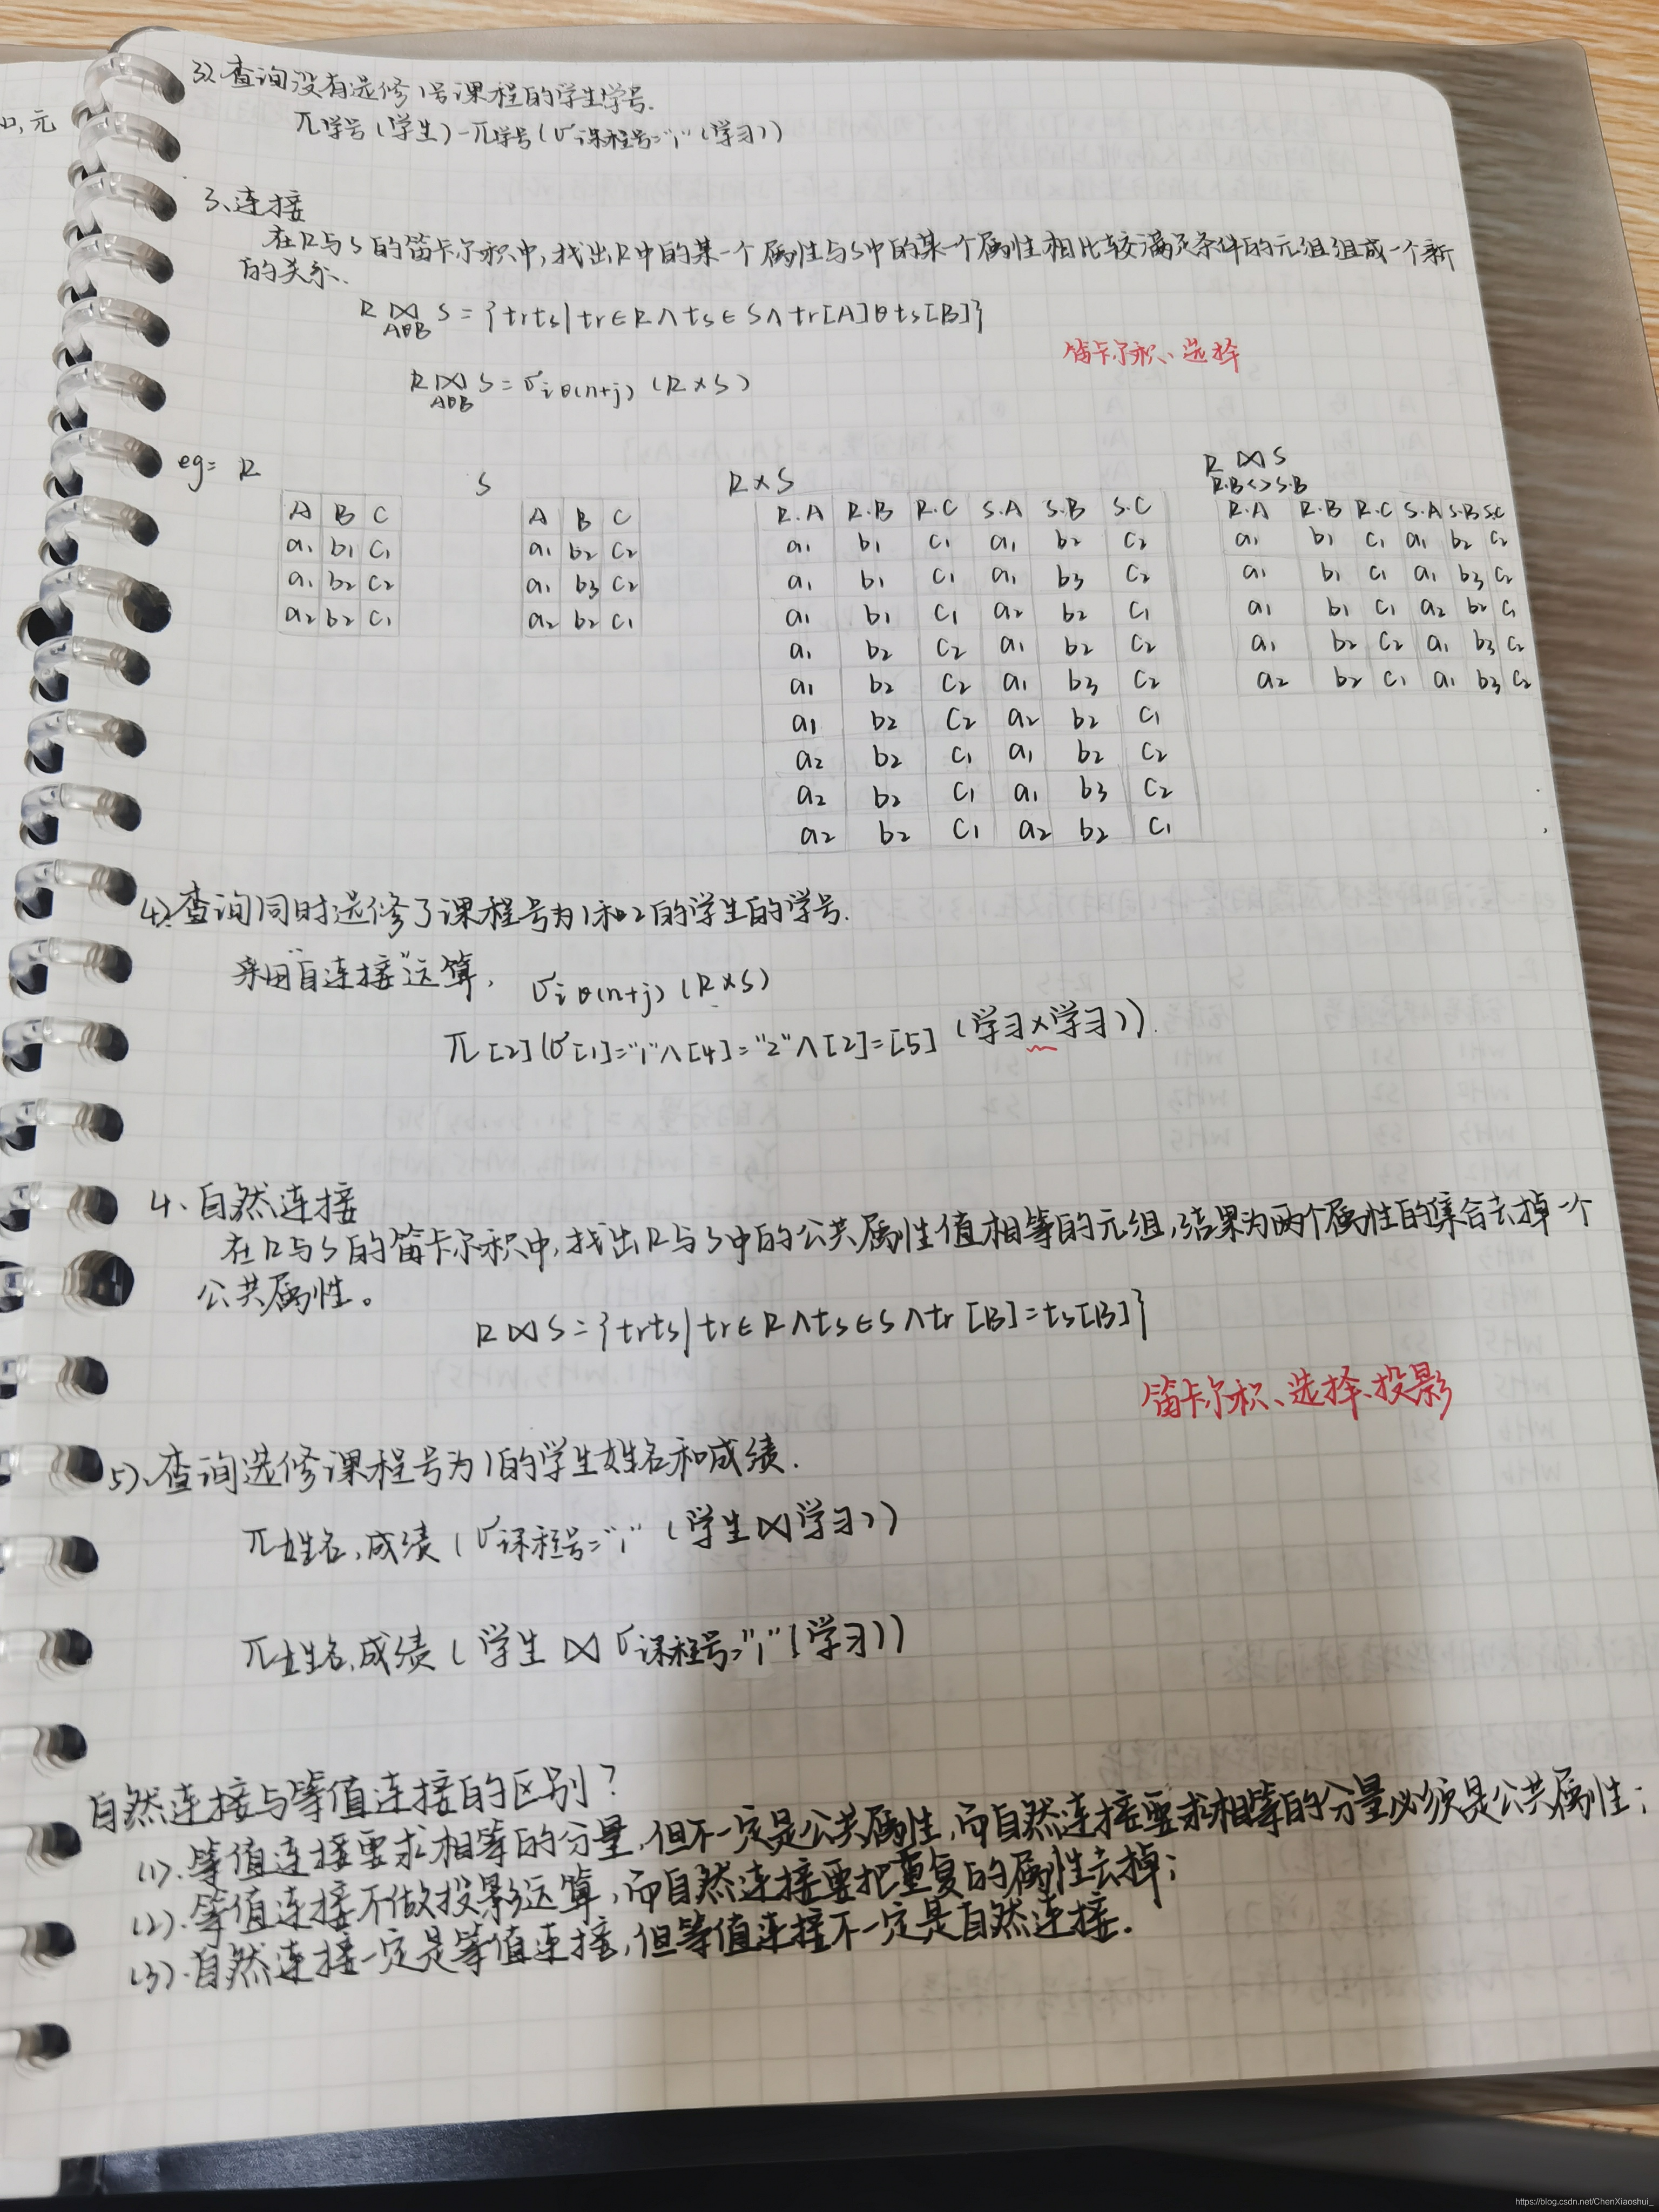 口,元
3).查询没有选修1号课程的学生学号.
π学号(学生)-π学号(σ课程号="1"(学习))
3、连接
在R与S的笛卡尔积中,找出R中的某一个属性与S中的某一个属性相比较满足条件的元组组成一个新
的关系.
R ⋈ S = {trts|tr∈R∧ts∈S∧tr[A]θts[B]}
AθB
笛卡尔积、选择
R ⋈ S = σiθ(n+j) (R×S)
AθB
eg= R
S
R×S
R ⋈ S
R.B<>S.B
A B C
a1 b1 c1
a1 b2 c2
a2 b2 c1
A B C
a1 b2 c2
a1 b3 c2
a2 b2 c1
R.A R.B R.C S.A S.B S.C
a1 b1 c1 a1 b2 c2
a1 b1 c1 a1 b3 c2
a1 b1 c1 a2 b2 c1
a1 b2 c2 a1 b2 c2
a1 b2 c2 a1 b3 c2
a1 b2 c2 a2 b2 c1
a2 b2 c1 a1 b2 c2
a2 b2 c1 a1 b3 c2
a2 b2 c1 a2 b2 c1
R.A R.B R.C S.A S.B S.C
a1 b1 c1 a1 b2 c2
a1 b1 c1 a1 b3 c2
a1 b1 c1 a2 b2 c1
a1 b2 c2 a1 b3 c2
a2 b2 c1 a1 b3 c2
4).查询同时选修了课程号为1和2的学生的学号.
采用"自连接"运算, σiθ(n+j) (R×S)
π[2](σ[1]="1"∧[4]="2"∧[2]=[5] (学习×学习)).
4、自然连接
在R与S的笛卡尔积中,找出R与S中的公共属性值相等的元组,结果为两个属性的集合去掉一个
公共属性。
R⋈S={trts|tr∈R∧ts∈S∧tr[B]=ts[B]}
笛卡尔积、选择、投影
5).查询选修课程号为1的学生姓名和成绩.
π姓名,成绩(σ课程号="1" (学生⋈学习))
π姓名,成绩(学生⋈σ课程号="1"(学习))
自然连接与等值连接的区别?
(1).等值连接要求相等的分量,但不一定是公共属性,而自然连接要求相等的分量必须是公共属性;
(2).等值连接不做投影运算,而自然连接要把重复的属性去掉;
(3).自然连接一定是等值连接,但等值连接不一定是自然连接.
https://blog.csdn.net/ChenXiaoshui_